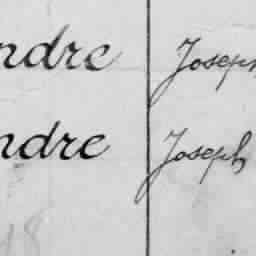 ndre Joseph
ndre Joseph